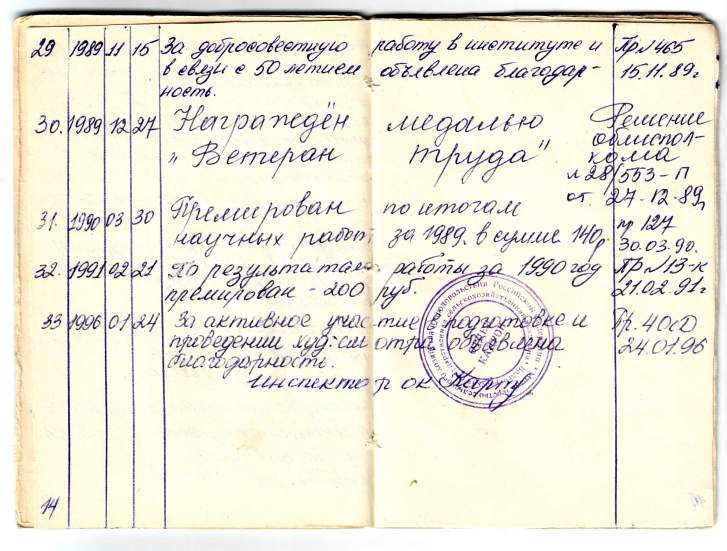 29 1989 11 15 За добросовестную работу в институте и Пр. № 465
в связи с 50 летием объявлена благодар- 15.11.89г
ность.
30. 1989 12 27 Награждён медалью Решение
"Ветеран труда" облиспол-
кома
№ 28/553-П
от 27-12-89г
31. 1990 03 30 Премирован по итогам
научных работ за 1989г. в сумме 140р пр 127
30.03.90.
32. 1991 02 21 По результатам работы за 1990 год Пр № 13-к
премирован - 200 руб. 21.02.91г
33 1996 01 24 За активное участие в подготовке и Пр. 40
проведении худ. смотра объявлена 24.01.96
благодарность.
Инспектор ок
14